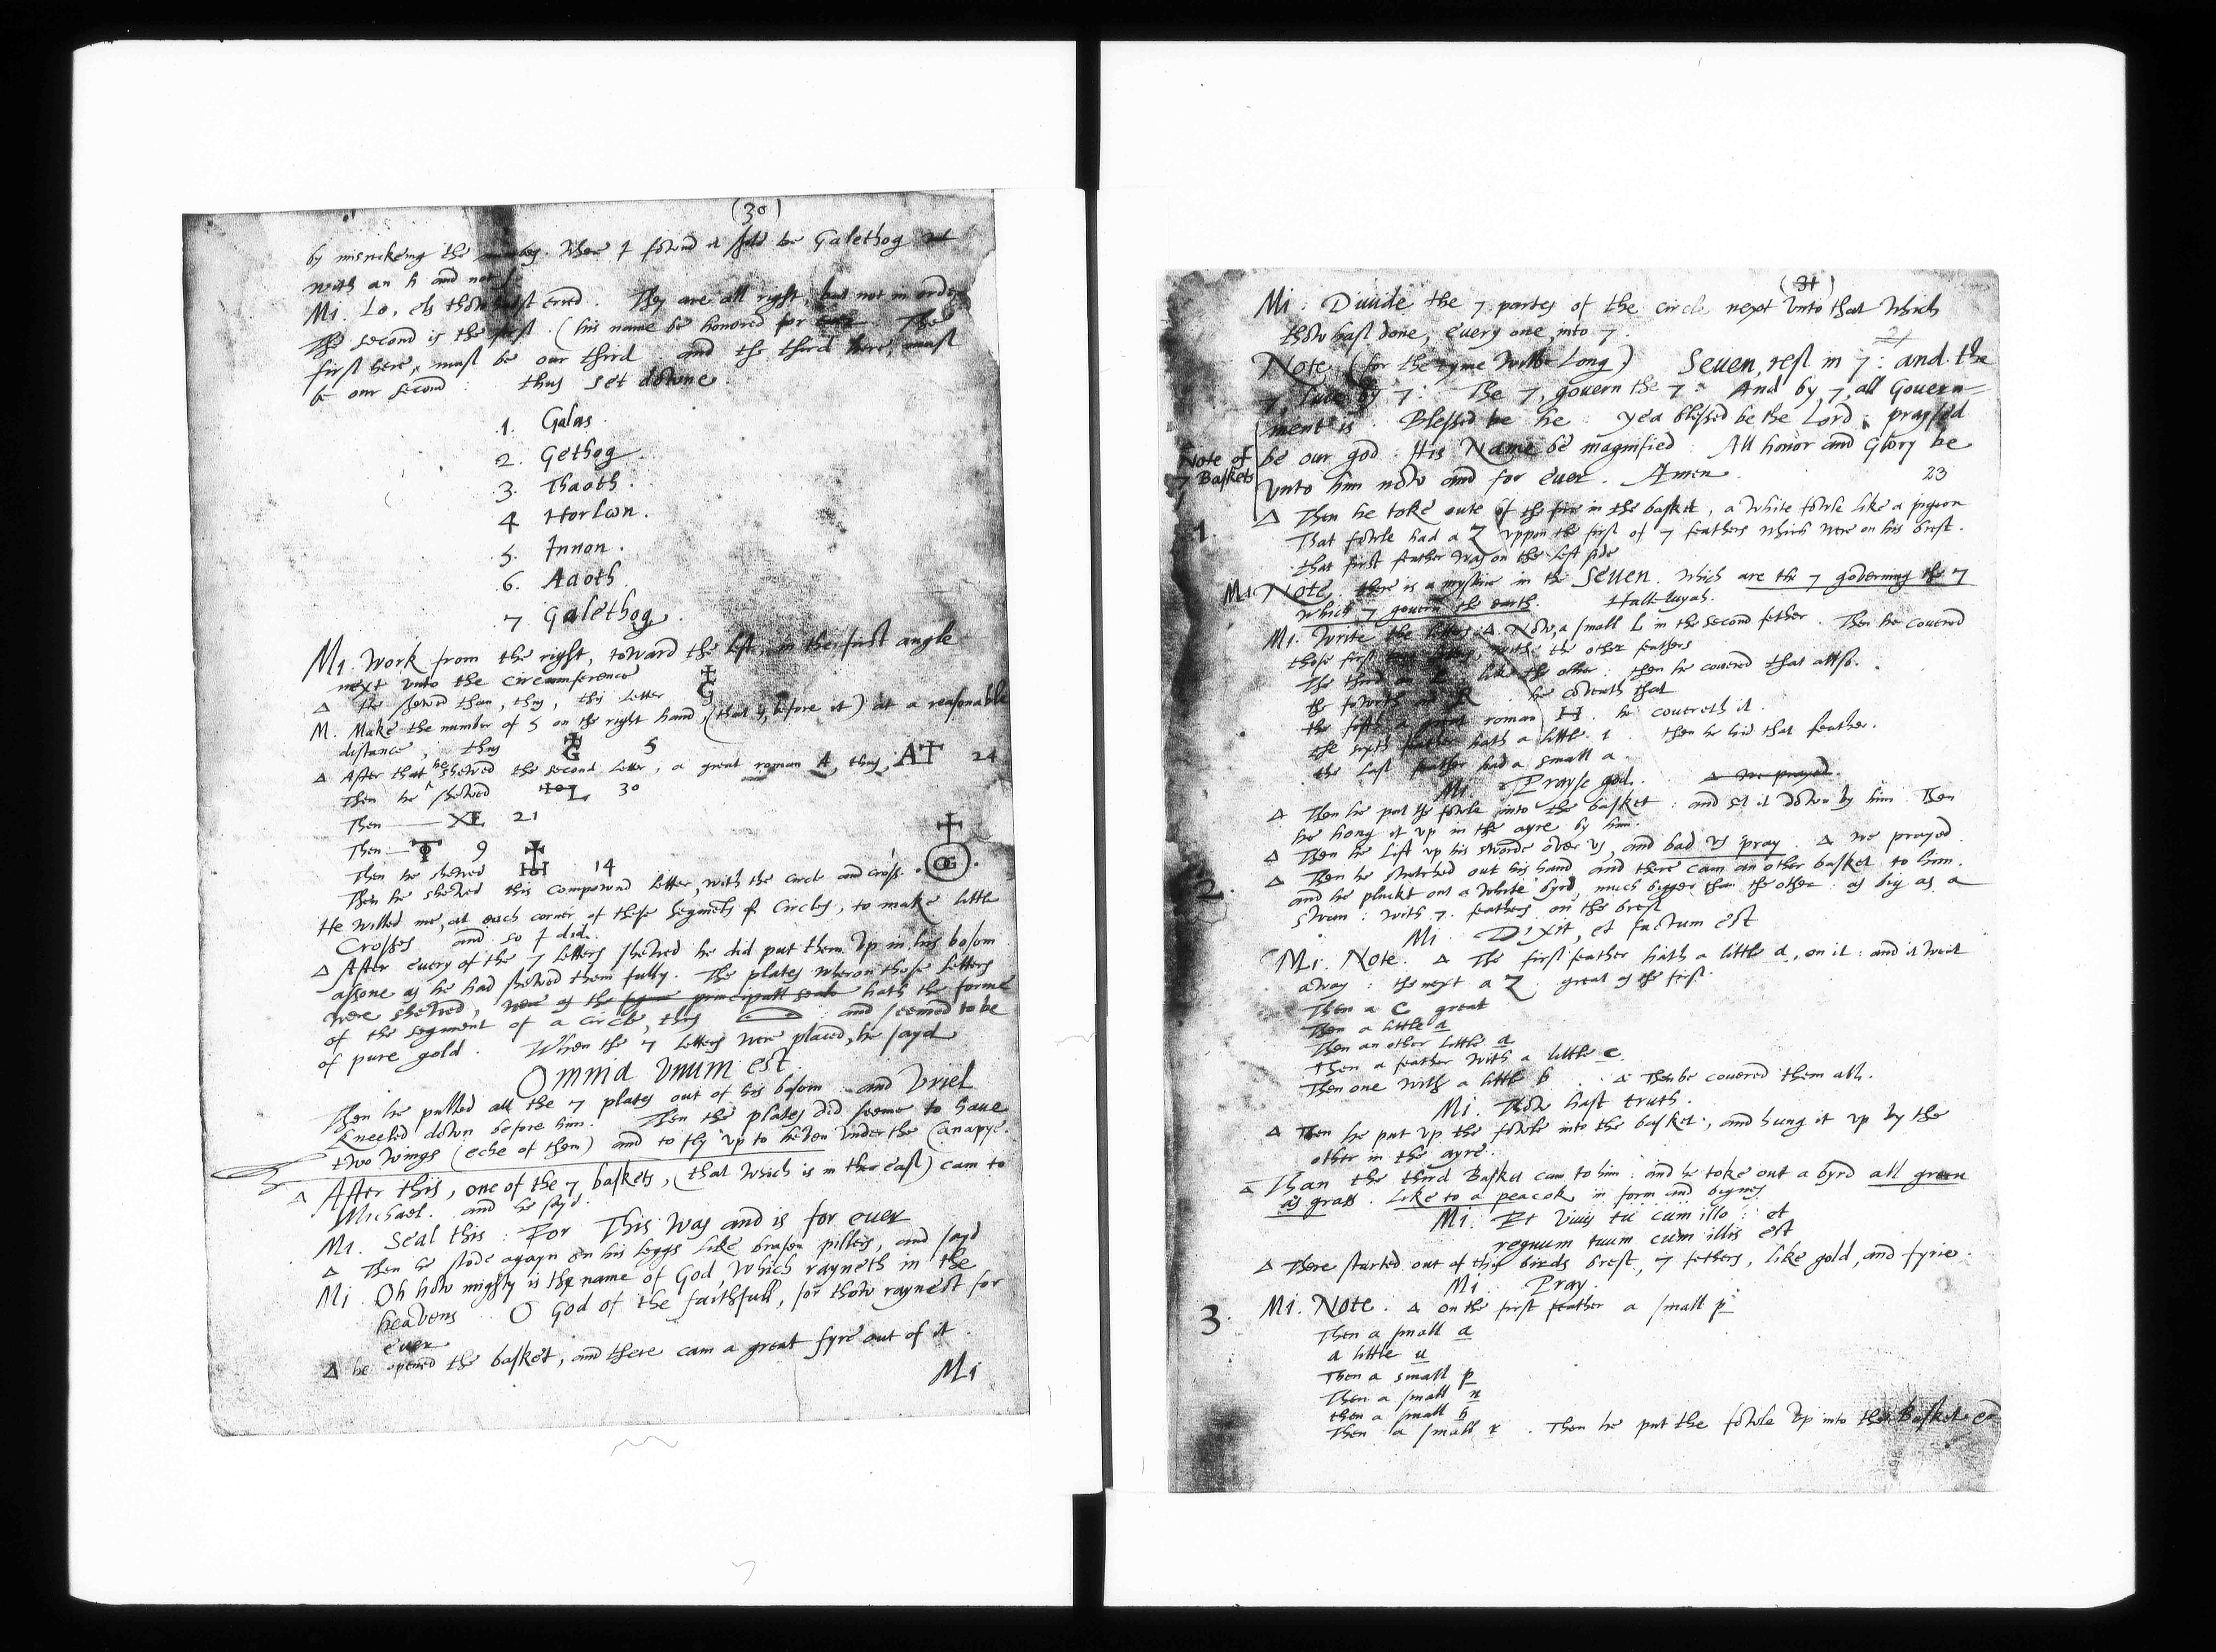 (30)
by misreckening the Wher I fownd it shold be Galethog
with an h and not
Mi. Lo, els thow hast erred. They are all right, but not in order
The second is the first. (his name be honored for The
first here, must be our third and the third here, must
be our second : thus set downe.
1. Galas.
2. Gethog
3. Thaoth.
4 Horlωn.
5. Innon.
6. Aaoth.
7. Galethog.
Mi. Work from the right, toward the left, in the first angle
next vnto the circumference
Δ He shewed than, thus, this letter G
M. Make the number of 5 on the right hand, (that is, before it) at a reasonable
distance, thus G 5
Δ After that he shewed the second letter, a great roman A, thus, A 24
Then he shewed L 30
Then 21
Then 9
Then he shewed H 14
Then he shewed this compownd letter, with the circle and cross. OG.
He willed me, at each corner of these Segments of Circles, to make little
Crosses and so I did.
Δ After euery of the 7 letters shewed he did put them vp in his bosom
assone as he had shewed them fully. The plates wheron those letters
were shewed, were of the principall seale hath the forme
of the segment of a circle, thus and seemed to be
of pure gold. When the 7 letters were placed, he sayd
Omnia vnum est.
Then he pulled all the 7 plates out of his bosom and Vriel
kneeled down before him. Then the plates did seeme to haue
two wings (eche of them) and to fly vp to heven vnder the Canapye.
Δ After this, one of the 7 baskets, (that which is in the east) cam to
Michael. and he sayd.
Mi. Seal this : For This was and is for euer
Δ Then he stode agayn on his leggs like brasen pillers, and sayd
Mi. Oh how mighty is the name of God, which rayneth in the
heavens O God of the faithfull, for thow raynest for
ever
Δ he opened the basket, and there cam a great fyre out of it.
Mi
(31)
Mi. Diuide the 7 partes of the circle next vnto that which
thow hast done, euery one, into 7.
Note (for the tyme wilbe Long) Seuen, rest in 7 : and the
7, by 7 : The 7, govern the 7 : And by 7, all Govern=
ment is. Blessed be he yea blessed be the Lord praysed
be our god : His Name be magnified All honor and Glory be
vnto him now and for euer. Amen.
Note of
7 Baskets
23
1.
Δ Then he toke oute of the fire in the basket, a white fowle like a pigeon
That fowle had a Z vppon the first of 7 feathers which were on his brest.
that first feather was on the left side
Mi. Note. there is a mysterie in the Seuen. which are the 7 governing the 7
which 7 govern the earth. Halleluyah.
Mi. Write the letters. Δ Now, a small L in the second fether. Then he couered
those first letters with the other feathers
The third an like the other : then he covered that allso.
the fowrth an R he covereth that
the fifth a great roman H. he couereth it.
the sixth feather hath a little i. then he hid that feather.
the last feather had a small a.
Mi. Prayse god. Δ we prayed.
Δ Then he put the fowle into the basket : and set it down by him. Then
he hong it vp in the ayre by him.
Δ Then he lift vp his sworde over vs, and bad vs pray. Δ we prayed
2.
Δ Then he stretched out his hand and there cam an other basket to him.
and he pluckt out a white byrd, much bigger than the other : as big as a
swan : with 7. feathers on the brest
Mi. Dixit, et factum est
Mi. Note. Δ The first feather hath a little a, on it : and it went
away : the next a Z great as the first.
Then a C great
Then a little a
Then an other little a
Then a feather with a little e.
Then one with a little b Δ Then he couered them all.
Mi. Thow hast truth.
Δ Then he put vp the fowle into the basket, and hung it vp by the
other in the ayre.
Δ Than the third Basket cam to him : and he toke out a byrd all green
as grass. Like to a peacok in form and bignes
Mi. Et viuis tu cum illo : et
regnum tuum cum illis est
Δ There started out of this birds brest, 7 fethers, like gold, and fyrie.
Mi. Pray.
3.
Mi. Note. Δ on the first feather a small p
Then a small a
a little u
Then a small p
Then a small n
then a small h
Then a small r. Then he put the fowle vp into the Basket